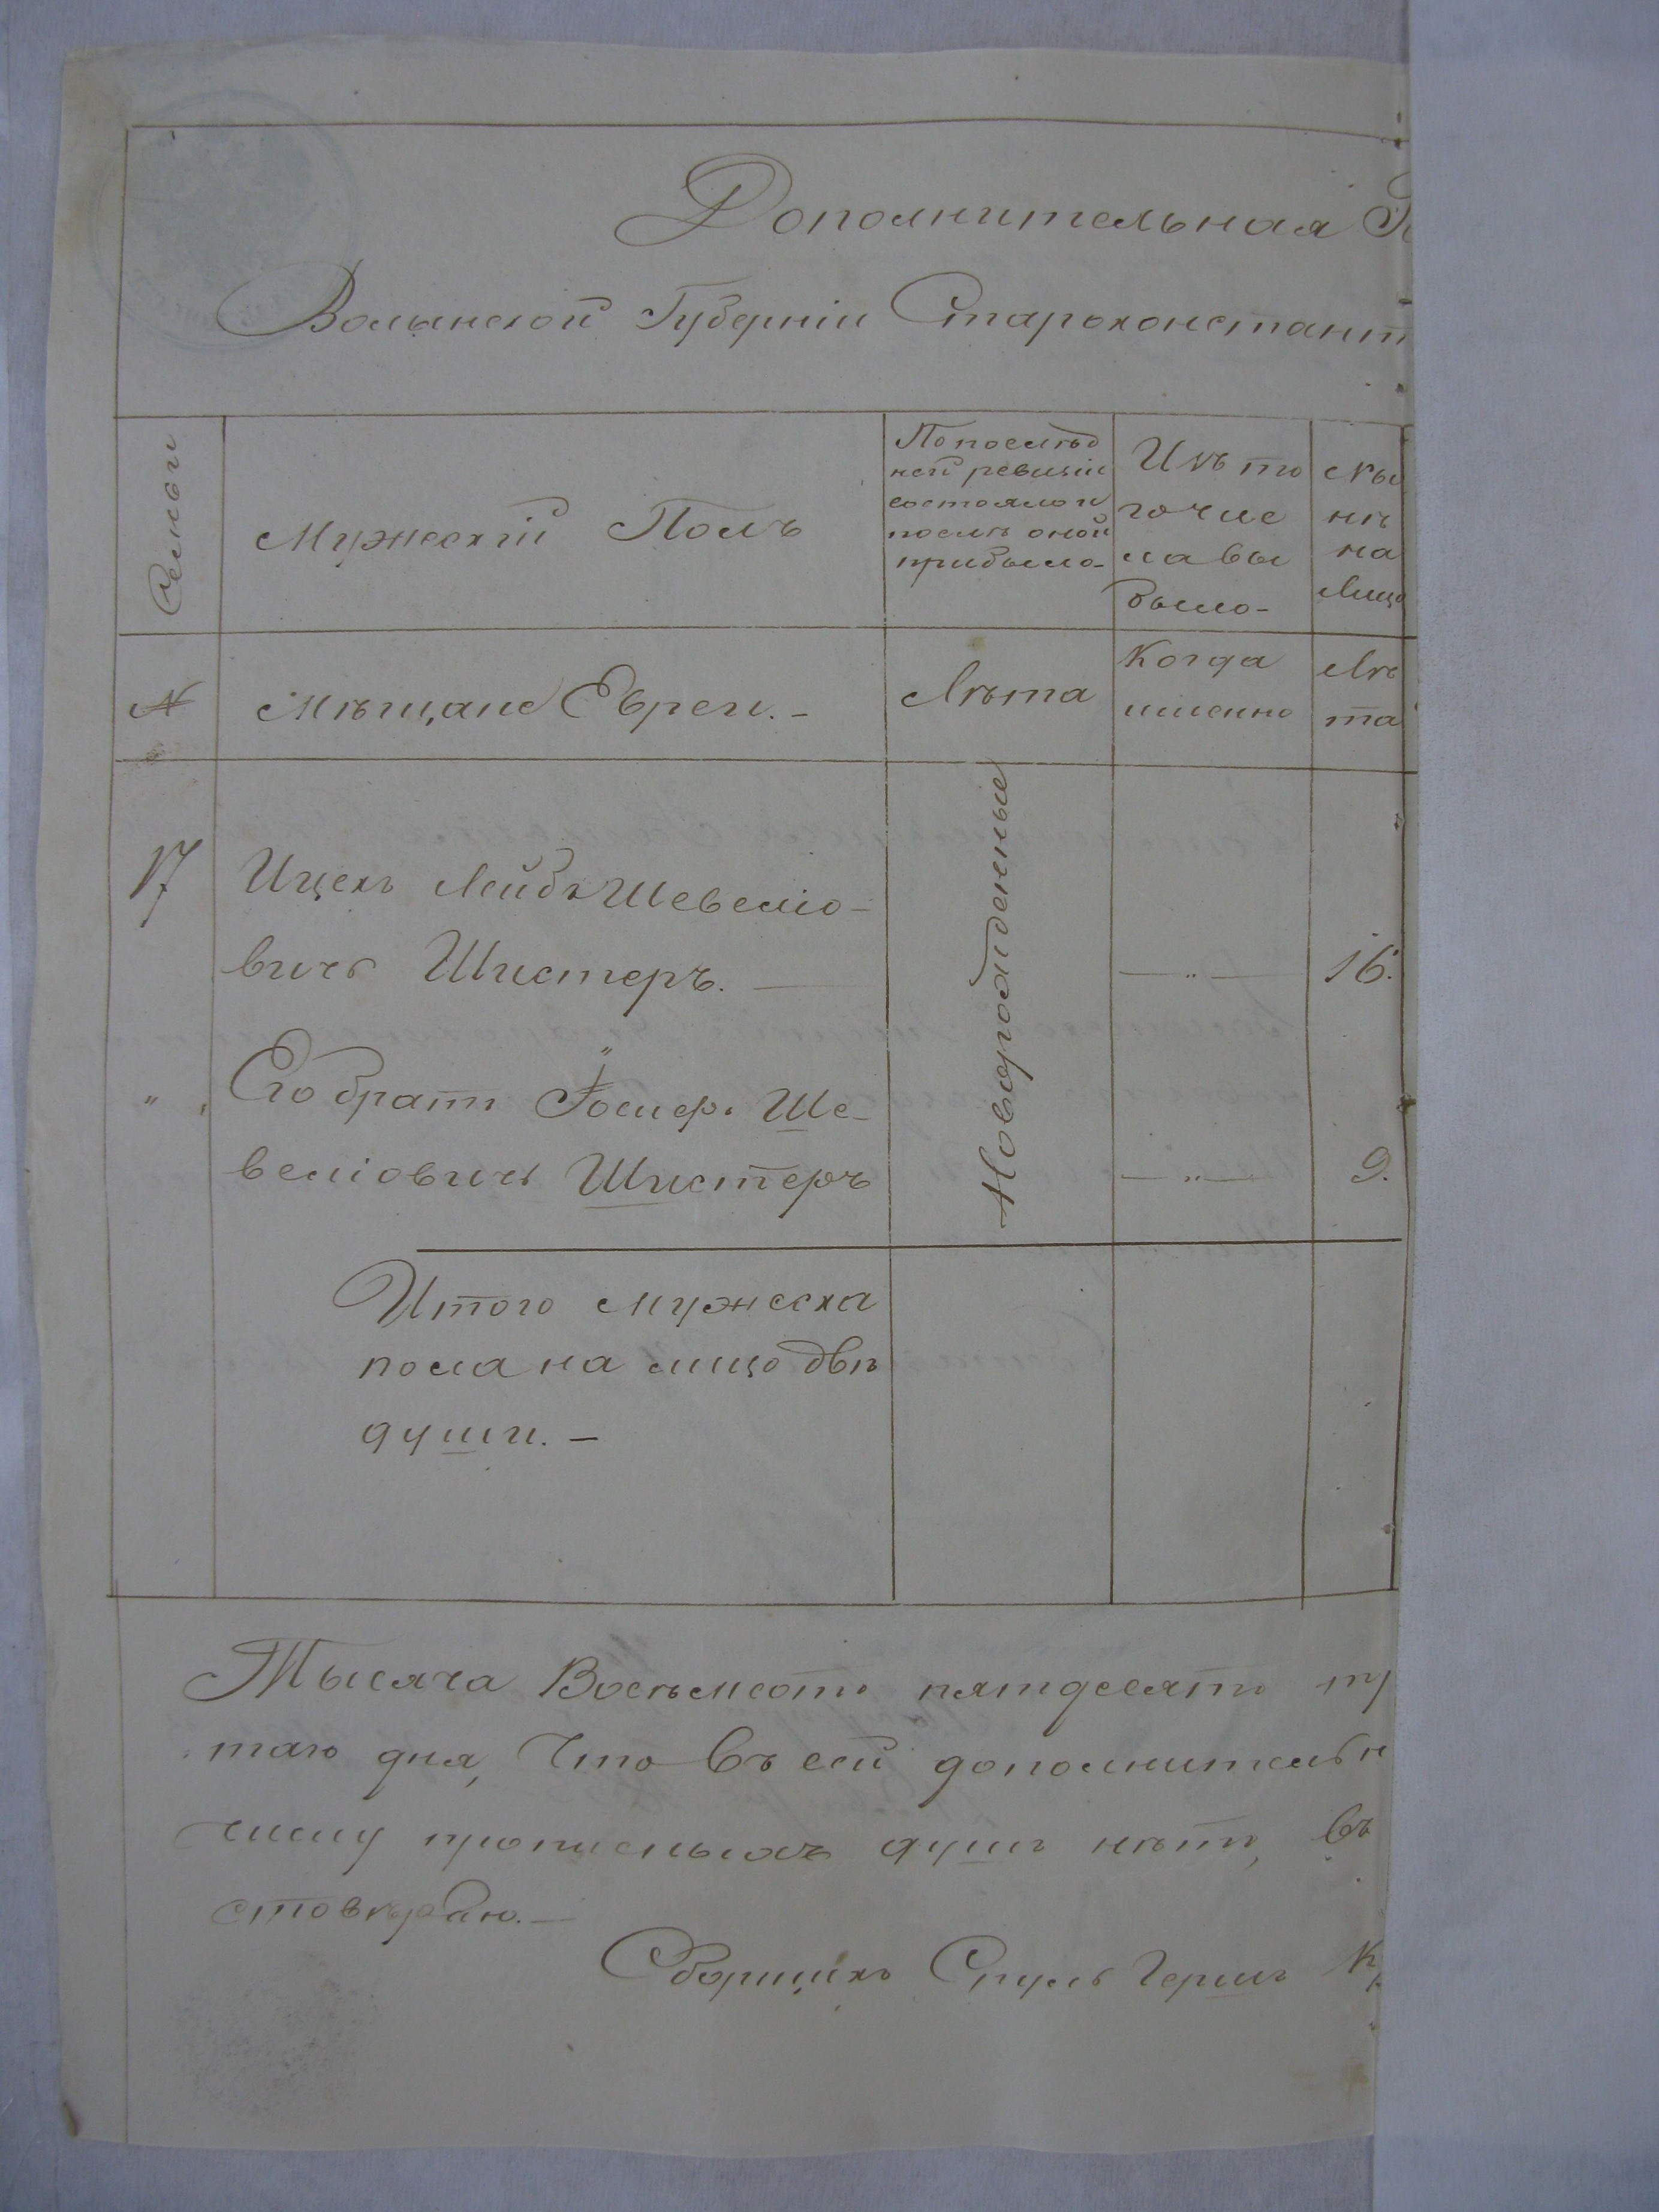 Дополнительная
Волынской Губерніи Староконстант
Семьи
Мужескій Полъ
По послѣд
ней ревизіи
состояло и
послѣ оной
прибыло
Изъ то
го чис
ла вы
было
Ны
нѣ
на
лицо
№
Мѣщане Евреи.-
Лѣта
Когда
именно
Лѣ
та
17
Ицекъ Лейбъ Шевеліо-
вичъ Шистеръ.
16.
Новорожденные
" Его братъ Іосифъ Ше-
веліовичъ Шистеръ
9.
Итого мужеска
пола на лицо двѣ
души.-
Тысяча Восемсотъ пятдесятъ
таго дня, что въ сей дополнительн
числу прописныхъ душъ нѣтъ, въ
стовѣряю.-
Сборщикъ Сруль Гершъ К